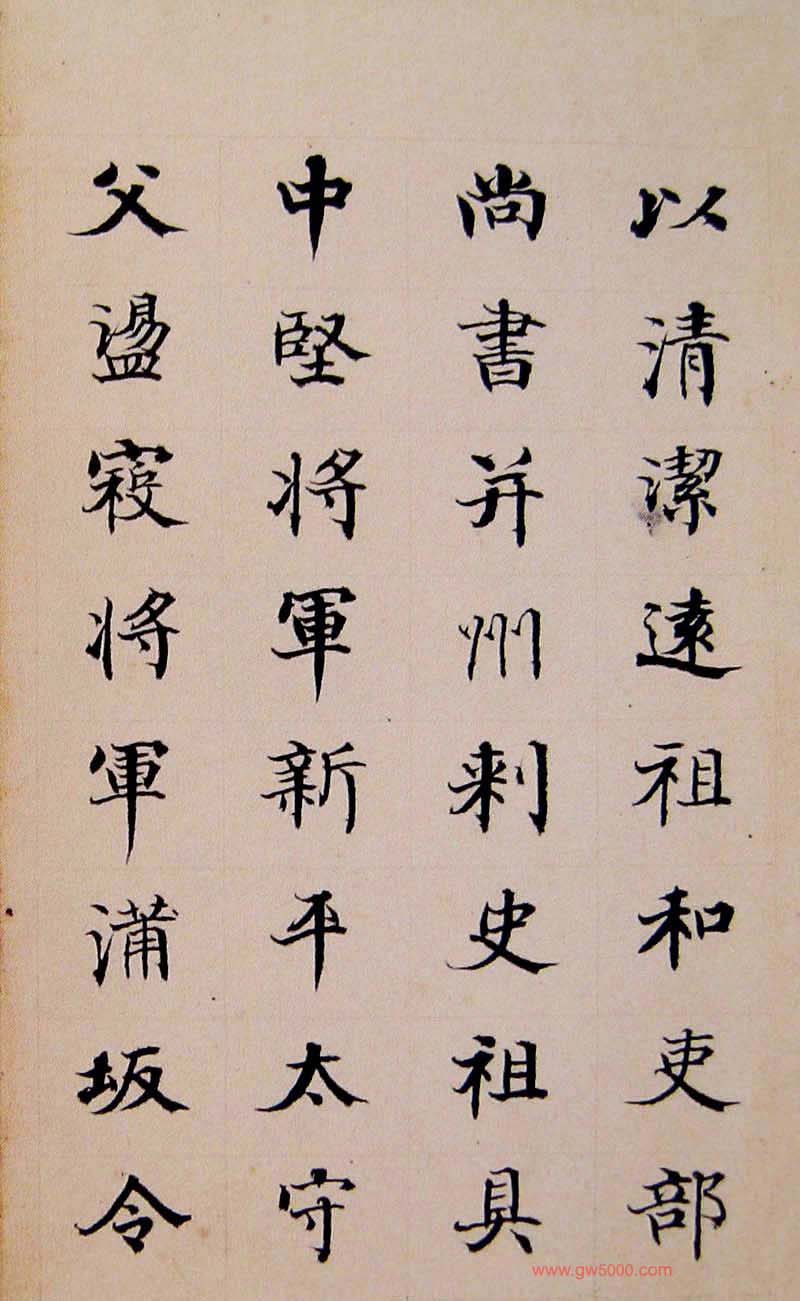 以清潔遠祖和吏部
尚書并州刺史祖具
中堅將軍新平太守
父盪寇將軍蒲坂令
www.gw5000.com